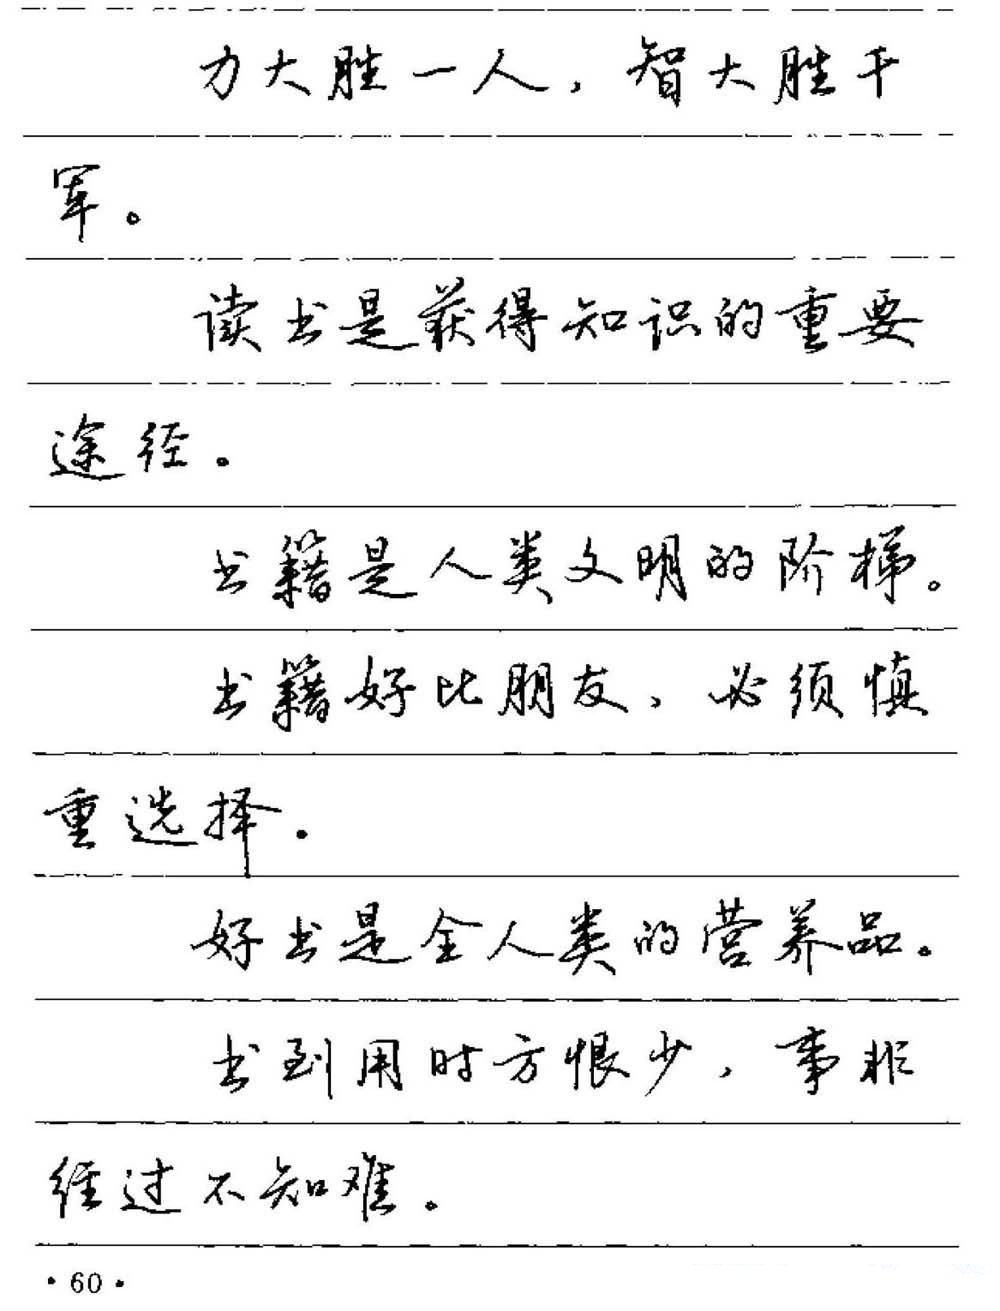 力大胜一人，智大胜千
军。
读书是获得知识的重要
途径。
书籍是人类文明的阶梯。
书籍好比朋友，必须慎
重选择。
好书是全人类的营养品。
书到用时方恨少，事非
经过不知难。
·60·